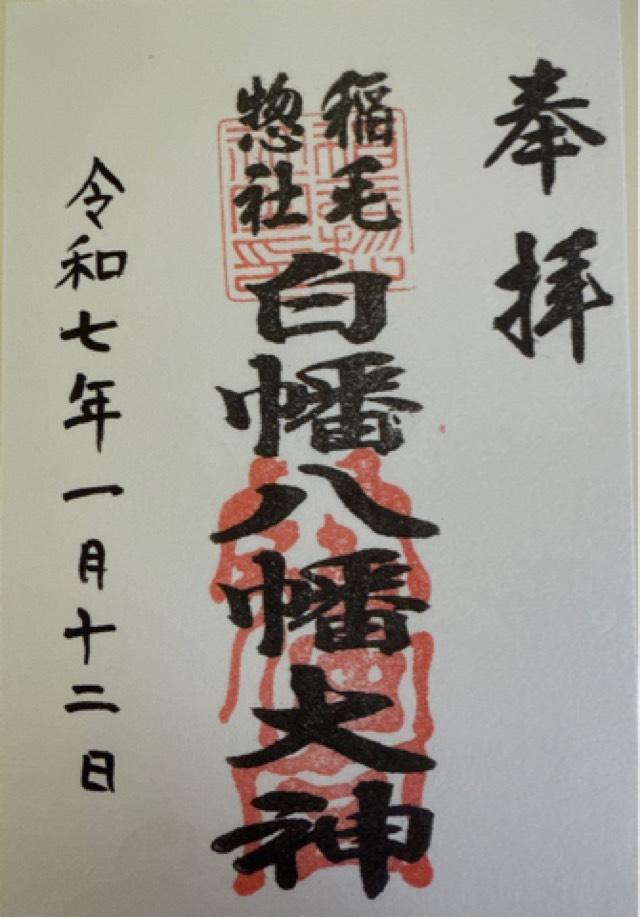 奉拝
稲毛
惣社
白幡八幡大神
令和七年一月十二日